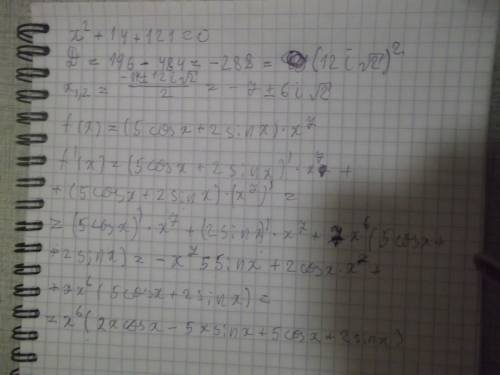 x² + 14 + 121 = 0
D = 196 - 484 = -288 = (12i√2)²
x₁,₂ = (-14 ± 12i√2)/2 = -7 ± 6i√2
f(x) = (5cosx + 2sinx)·x⁷
f'(x) = (5cosx + 2sinx)'·x⁷ +
+ (5cosx + 2sinx)·(x⁷)' =
= (5cosx)'·x⁷ + (2sinx)'·x⁷ + 7x⁶(5cosx +
+ 2sinx) = -x⁷5sinx + 2cosx·x⁷ +
+ 7x⁶(5cosx + 2sinx) =
= x⁶(2xcosx - 5xsinx + 5cosx + 2sinx)